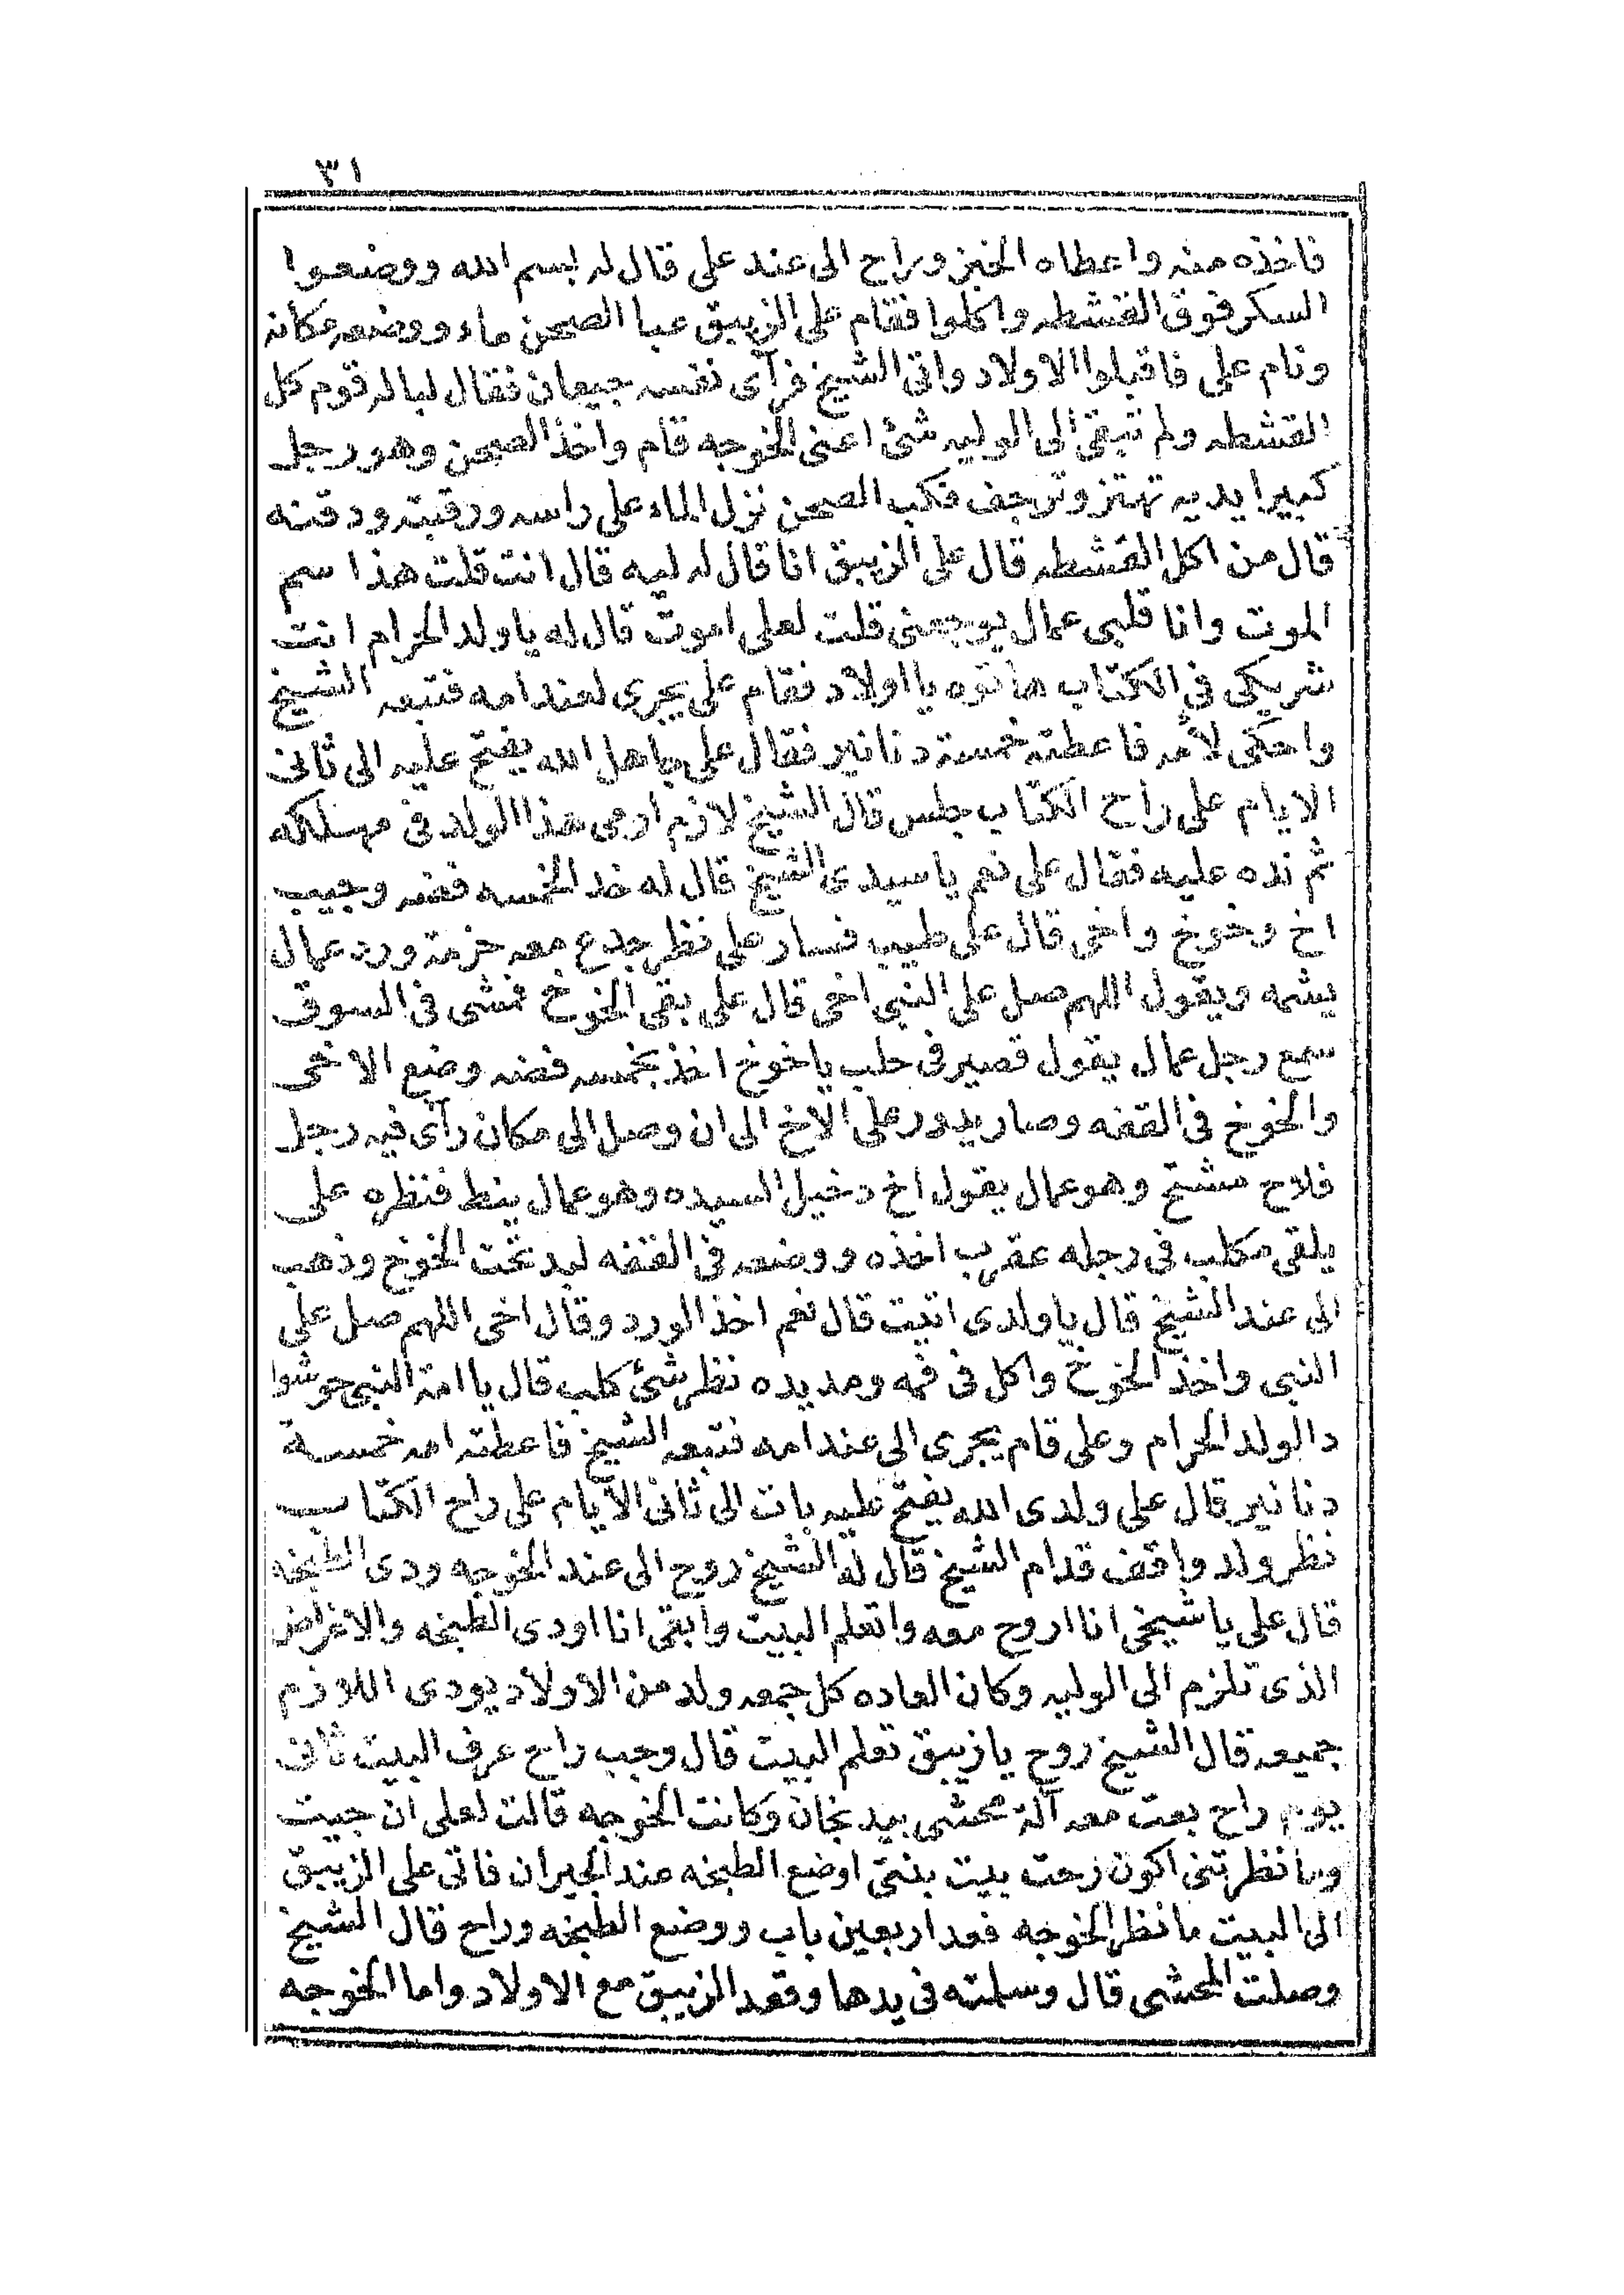 ٣١
فاخذه منه واعطاه الخبز وراح الى عند على قال له بسم الله ووضعوا
السكر فوق القشطه واكلوا فقام على الزيبق عبا الصحن ماء ووضعه مكانه
ونام على فاقبلوا الاولاد واتى الشيخ فرآى نفسه جيعان فقال لباله قوم كل
القشطه ولم تبقى الى الوليه شئ اعنى الخوجه قام واخذ الصحن وهو رجل
كبير ايديه تهتز وترجف فكب الصحن نزل الماء على راسه ورقبته ودقنه
قال من اكل القشطه قال على الزيبق انا قال له ليه قال انت قلت هذا سم
الموت وانا قلبى عمال يوجعنى قلت لعلى اموت قال له يا ولد الحرام انت
شريكى فى الكتاب هاتوه يا اولاد فقام على يجرى لعند امه فتبعه الشيخ
واحكى لأمه فاعطته خمسة دنانير فقال على يا هل الله يفتح عليه الى ثانى
الايام على راح الكتاب جلس قال الشيخ لازم ارمى هذا الولد فى مهلكه
ثم نده عليه فقال على نعم يا سيدى الشيخ قال له خد الخمسه فضه وجيب
اخ وخوخ واخى قال على طيب فسار على نظر جدع معه حزمة ورد عمال
يشمه ويقول اللهم صل على النبى اخى قال على بقى الخوخ فمشى فى السوق
سمع رجل عمال يقول قصير فى حلب يا خوخ اخذ بخمسه فضه وضع الاخى
والخوخ فى القفه وصار يدور على الاخ الى ان وصل الى مكان رآى فيه رجل
فلاح مشتح وهو عمال يقول اخ دخيل السيده وهو عمال ينط فنظره على
يلقى مكلب فى رجله عقرب اخذه ووضعه فى القفه لبد تحت الخوخ وذهب
الى عند الشيخ قال يا ولدى اتيت قال نعم اخذ الورد وقال اخى اللهم صل على
النبى واخذ الخوخ واكل فى فمه ومد يده نظر شئ كلب قال يا امة النبى حوشوا
دا الولد الحرام وعلى قام يجرى الى عند امه فتبعه الشيخ فاعطته امه خمسة
دنانير قال على ولدى الله يفتح عليه بات الى ثانى الايام على راح الكتاب
نظر ولد واقف قدام الشيخ قال له الشيخ روح الى عند الخوجه ودى الطبخه
قال على يا شيخى انا اروح معه واتعلم البيت وابقى انا اودى الطبخه والاغراض
الذى تلزم الى الوليه وكان العاده كل جمعه ولد من الاولاد يودى اللوازم
جميعه قال الشيخ روح يا زيبق تعلم البيت قال وجب راح عرف البيت ثانى
يوم راح بعت معه آلة محشى بيدنجان وكانت الخوجه قالت لعلى ان جيت
وما نظرتنى اكون رحت بيت بنتى اوضع الطبخه عند الجيران فاتى على الزيبق
الى البيت ما نظر الخوجه فعد اربعين باب ووضع الطبخه وراح قال الشيخ
وصلت المحشى قال وسلمته فى يدها وقعد الزيبق مع الاولاد واما الخوجه